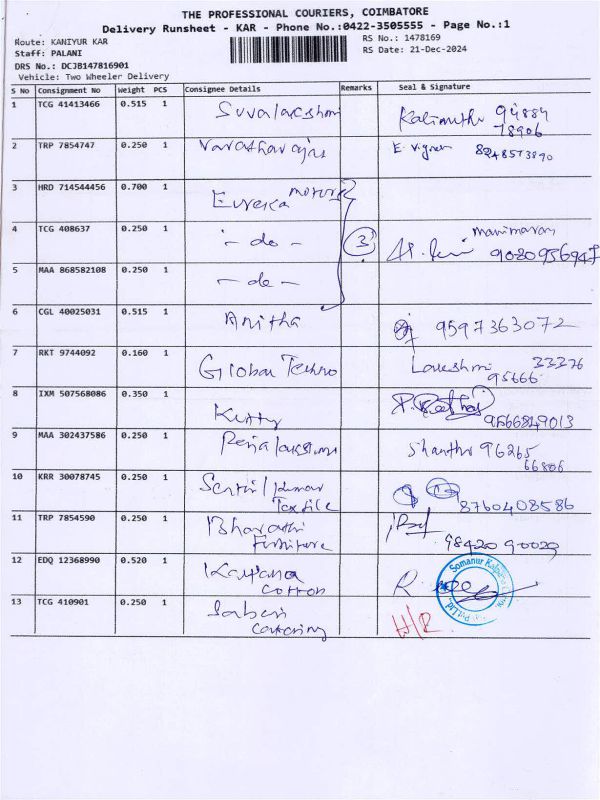 THE PROFESSIONAL COURIERS, COIMBATORE
Delivery Runsheet - KAR - Phone No.:0422-3505555 - Page No.:1
Route: KANIYUR KAR
RS No.: 1478169
Staff: PALANI
RS Date: 21-Dec-2024
DRS No.: DCJB147816901
Vehicle: Two Wheeler Delivery
S No Consignment No Weight PCS Consignee Details Remarks Seal & Signature
1 TCG 41413466 0.515 1 Suvalakshmi 94884
78906
2 TRP 7854747 0.250 1 Varatharajas E. Vignesh 8248573890
3 HRD 714544456 0.700 1 Eureka motors
4 TCG 408637 0.250 1 - do - 3 manimaran
9020956947
5 MAA 868582108 0.250 1 - do -
6 CGL 40025031 0.515 1 Anitha 9597363072
7 RKT 9744092 0.160 1 Global Techno 33376
95666
8 IXM 507568086 0.350 1 Kutty 9566849013
9 MAA 302437586 0.250 1 Shanthi 96265
66806
10 KRR 30078745 0.250 1 Senthil Kumar
Texfile 8760408586
11 TRP 7854590 0.250 1 Bharathi
Furniture 98420 90029
12 EDQ 12368990 0.520 1 Kalpana
Cotton Somanur Kalpana
13 TCG 410901 0.250 1 Saberi
Catering H/R